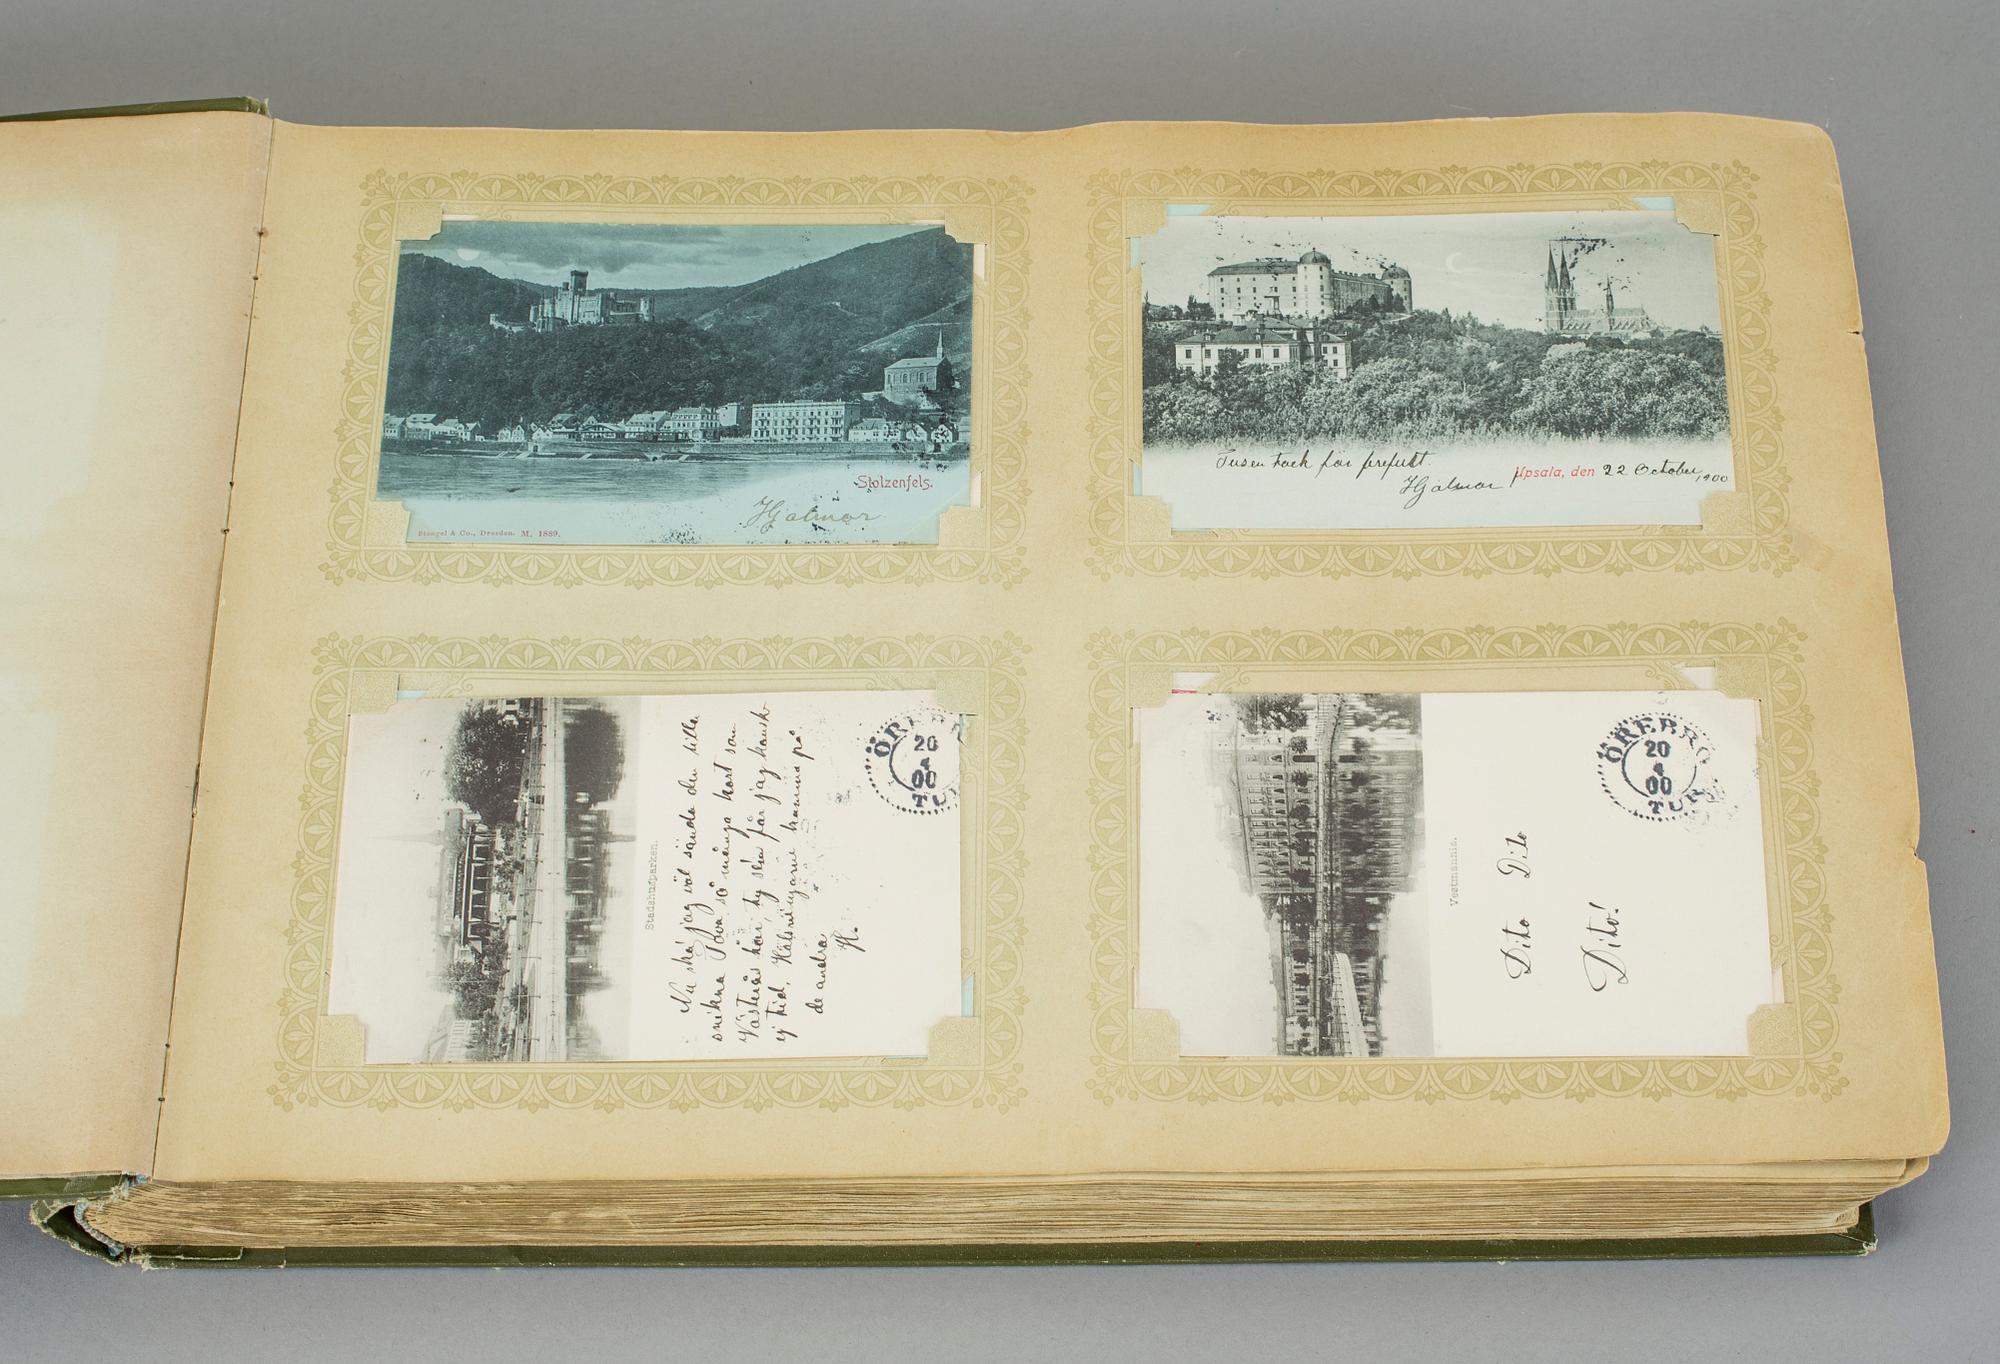 Stolzenfels.
Hjalmar
Stengel & Co., Dresden. M. 1889.
Tusen tack för
Hjalmar
Upsala, den 22 October 1900
Stadshusparken.
Nu ska' jag väl sända den lilla
snikna så många kort som
Västerås har, ty sen får jag kanske
ej tid, Hälsningarne komma på
de andra
H.
ÖREBRO
20
4
00
TUR
Vestmannia.
Dito Dito
Dito!
ÖREBRO
20
4
00
TUR